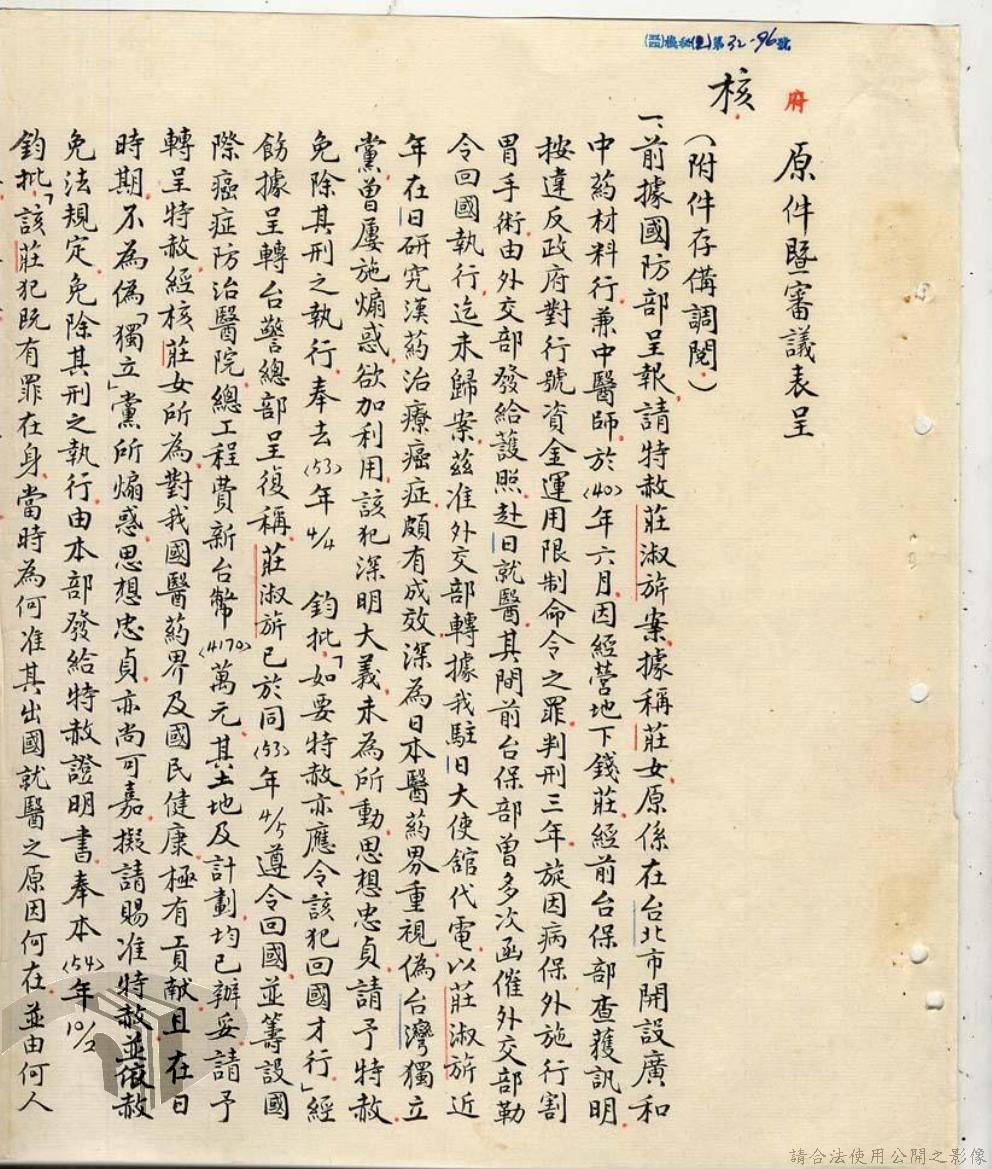 (晋)機秘(乙)第32-96號
府
核
原件暨審議表呈
(附件存備調閱。)
一、前據國防部呈報,請特赦莊淑旂案,據稱莊女原係在台北市開設廣和
中葯材料行,兼中醫師,於〈40〉年六月,因經營地下錢莊,經前台保部查獲訊明
按違反政府對行號資金運用限制命令之罪,判刑三年,旋因病保外施行割
胃手術,由外交部發給護照,赴日就醫,其間前台保部曾多次函催外交部勒
令回國執行,迄未歸案,茲准外交部轉據我駐日大使舘代電,以莊淑旂近
年在日研究漢葯治療癌症,頗有成效,深為日本醫葯界重視,偽台灣獨立
黨,曾屢施煽惑,欲加利用,該犯深明大義,未為所動,思想忠貞,請予特赦,
免除其刑之執行,奉去〈53〉年4/4 鈞批「如要特赦,亦應令該犯回國才行」經
飭據呈轉台警總部呈復稱,莊淑旂已於同〈53〉年4/5遵令回國,並籌設國
際癌症防治醫院,總工程費新台幣〈4170〉萬元,其土地及計劃,均已辦妥,請予
轉呈特赦,經核莊女所為,對我國醫葯界及國民健康,極有貢献,且在日
時期,不為偽「獨立」黨所煽惑,思想忠貞,亦尚可嘉,擬請賜准特赦,並依赦
免法規定,免除其刑之執行,由本部發給特赦證明書,奉本〈54〉年10/2
鈞批「該莊犯既有罪在身,當時為何准其出國就醫之原因何在,並由何人
請合法使用公開之影像